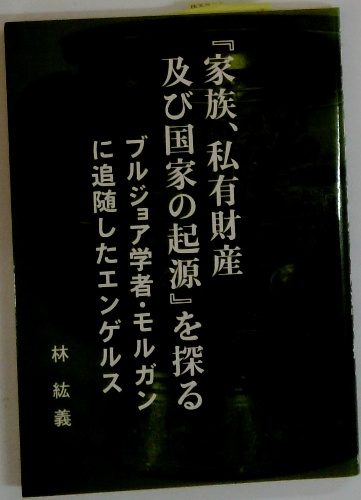 『家族、私有財産
及び国家の起源』を探る
ブルジョア学者・モルガン
に追随したエンゲルス
林 紘義